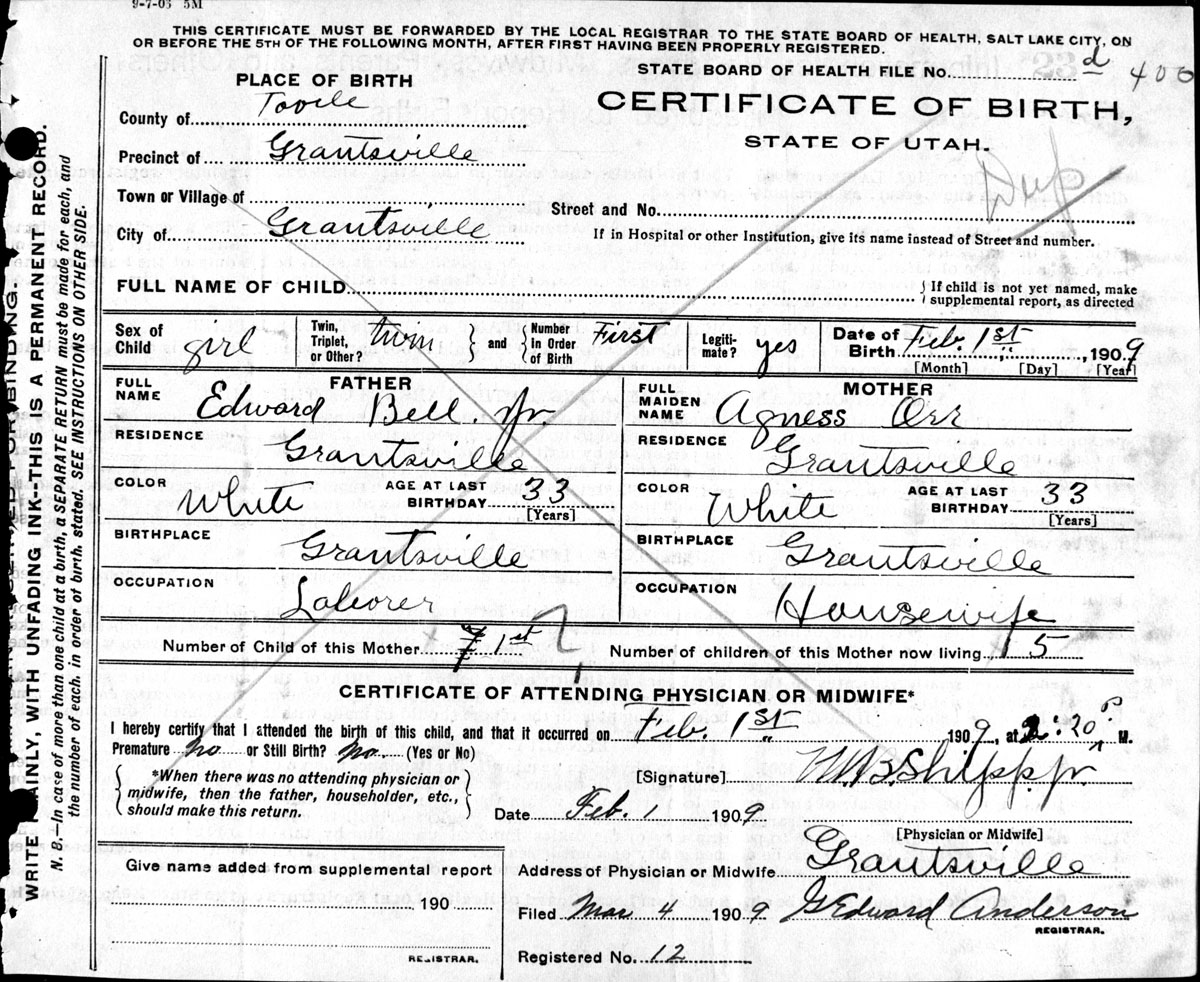 9-7-05 5M
THIS CERTIFICATE MUST BE FORWARDED BY THE LOCAL REGISTRAR TO THE STATE BOARD OF HEALTH, SALT LAKE CITY, ON
OR BEFORE THE 5TH OF THE FOLLOWING MONTH, AFTER FIRST HAVING BEEN PROPERLY REGISTERED.
STATE BOARD OF HEALTH FILE NO. d 400
PLACE OF BIRTH
CERTIFICATE OF BIRTH,
STATE OF UTAH.
County of Tooele
Precinct of Grantsville
Town or Village of
City of Grantsville
Dup
Street and No.
If in Hospital or other Institution, give its name instead of Street and number.
FULL NAME OF CHILD
{ If child is not yet named, make
supplemental report, as directed
Sex of Child girl Twin, Triplet, or Other? twin } and { Number In Order of Birth First Legiti-mate? yes Date of Birth Feb. 1st, 1909
[Month] [Day] [Year]
FATHER
FULL NAME Edward Bell Jr.
RESIDENCE Grantsville
COLOR White AGE AT LAST BIRTHDAY 33
[Years]
BIRTHPLACE Grantsville
OCCUPATION Laborer
MOTHER
FULL MAIDEN NAME Agness Orr
RESIDENCE Grantsville
COLOR White AGE AT LAST BIRTHDAY 33
[Years]
BIRTHPLACE Grantsville
OCCUPATION Housewife
Number of Child of this Mother 7 1st ? Number of children of this Mother now living 5
CERTIFICATE OF ATTENDING PHYSICIAN OR MIDWIFE*
I hereby certify that I attended the birth of this child, and that it occurred on Feb. 1st 1909, at 2:20 P M.
Premature No or Still Birth? No (Yes or No)
{ *When there was no attending physician or
midwife, then the father, householder, etc.,
should make this return. }
[Signature] Shipp Jr
Date Feb. 1 1909
[Physician or Midwife]
Give name added from supplemental report
190
REGISTRAR.
Address of Physician or Midwife Grantsville
Filed Mar 4 1909 G Edward Anderson
REGISTRAR.
Registered No. 12
WRITE PLAINLY, WITH UNFADING INK--THIS IS A PERMANENT RECORD.
N. B.—In case of more than one child at a birth, a SEPARATE RETURN must be made for each, and
the number of each, in order of birth, stated. SEE INSTRUCTIONS ON OTHER SIDE.